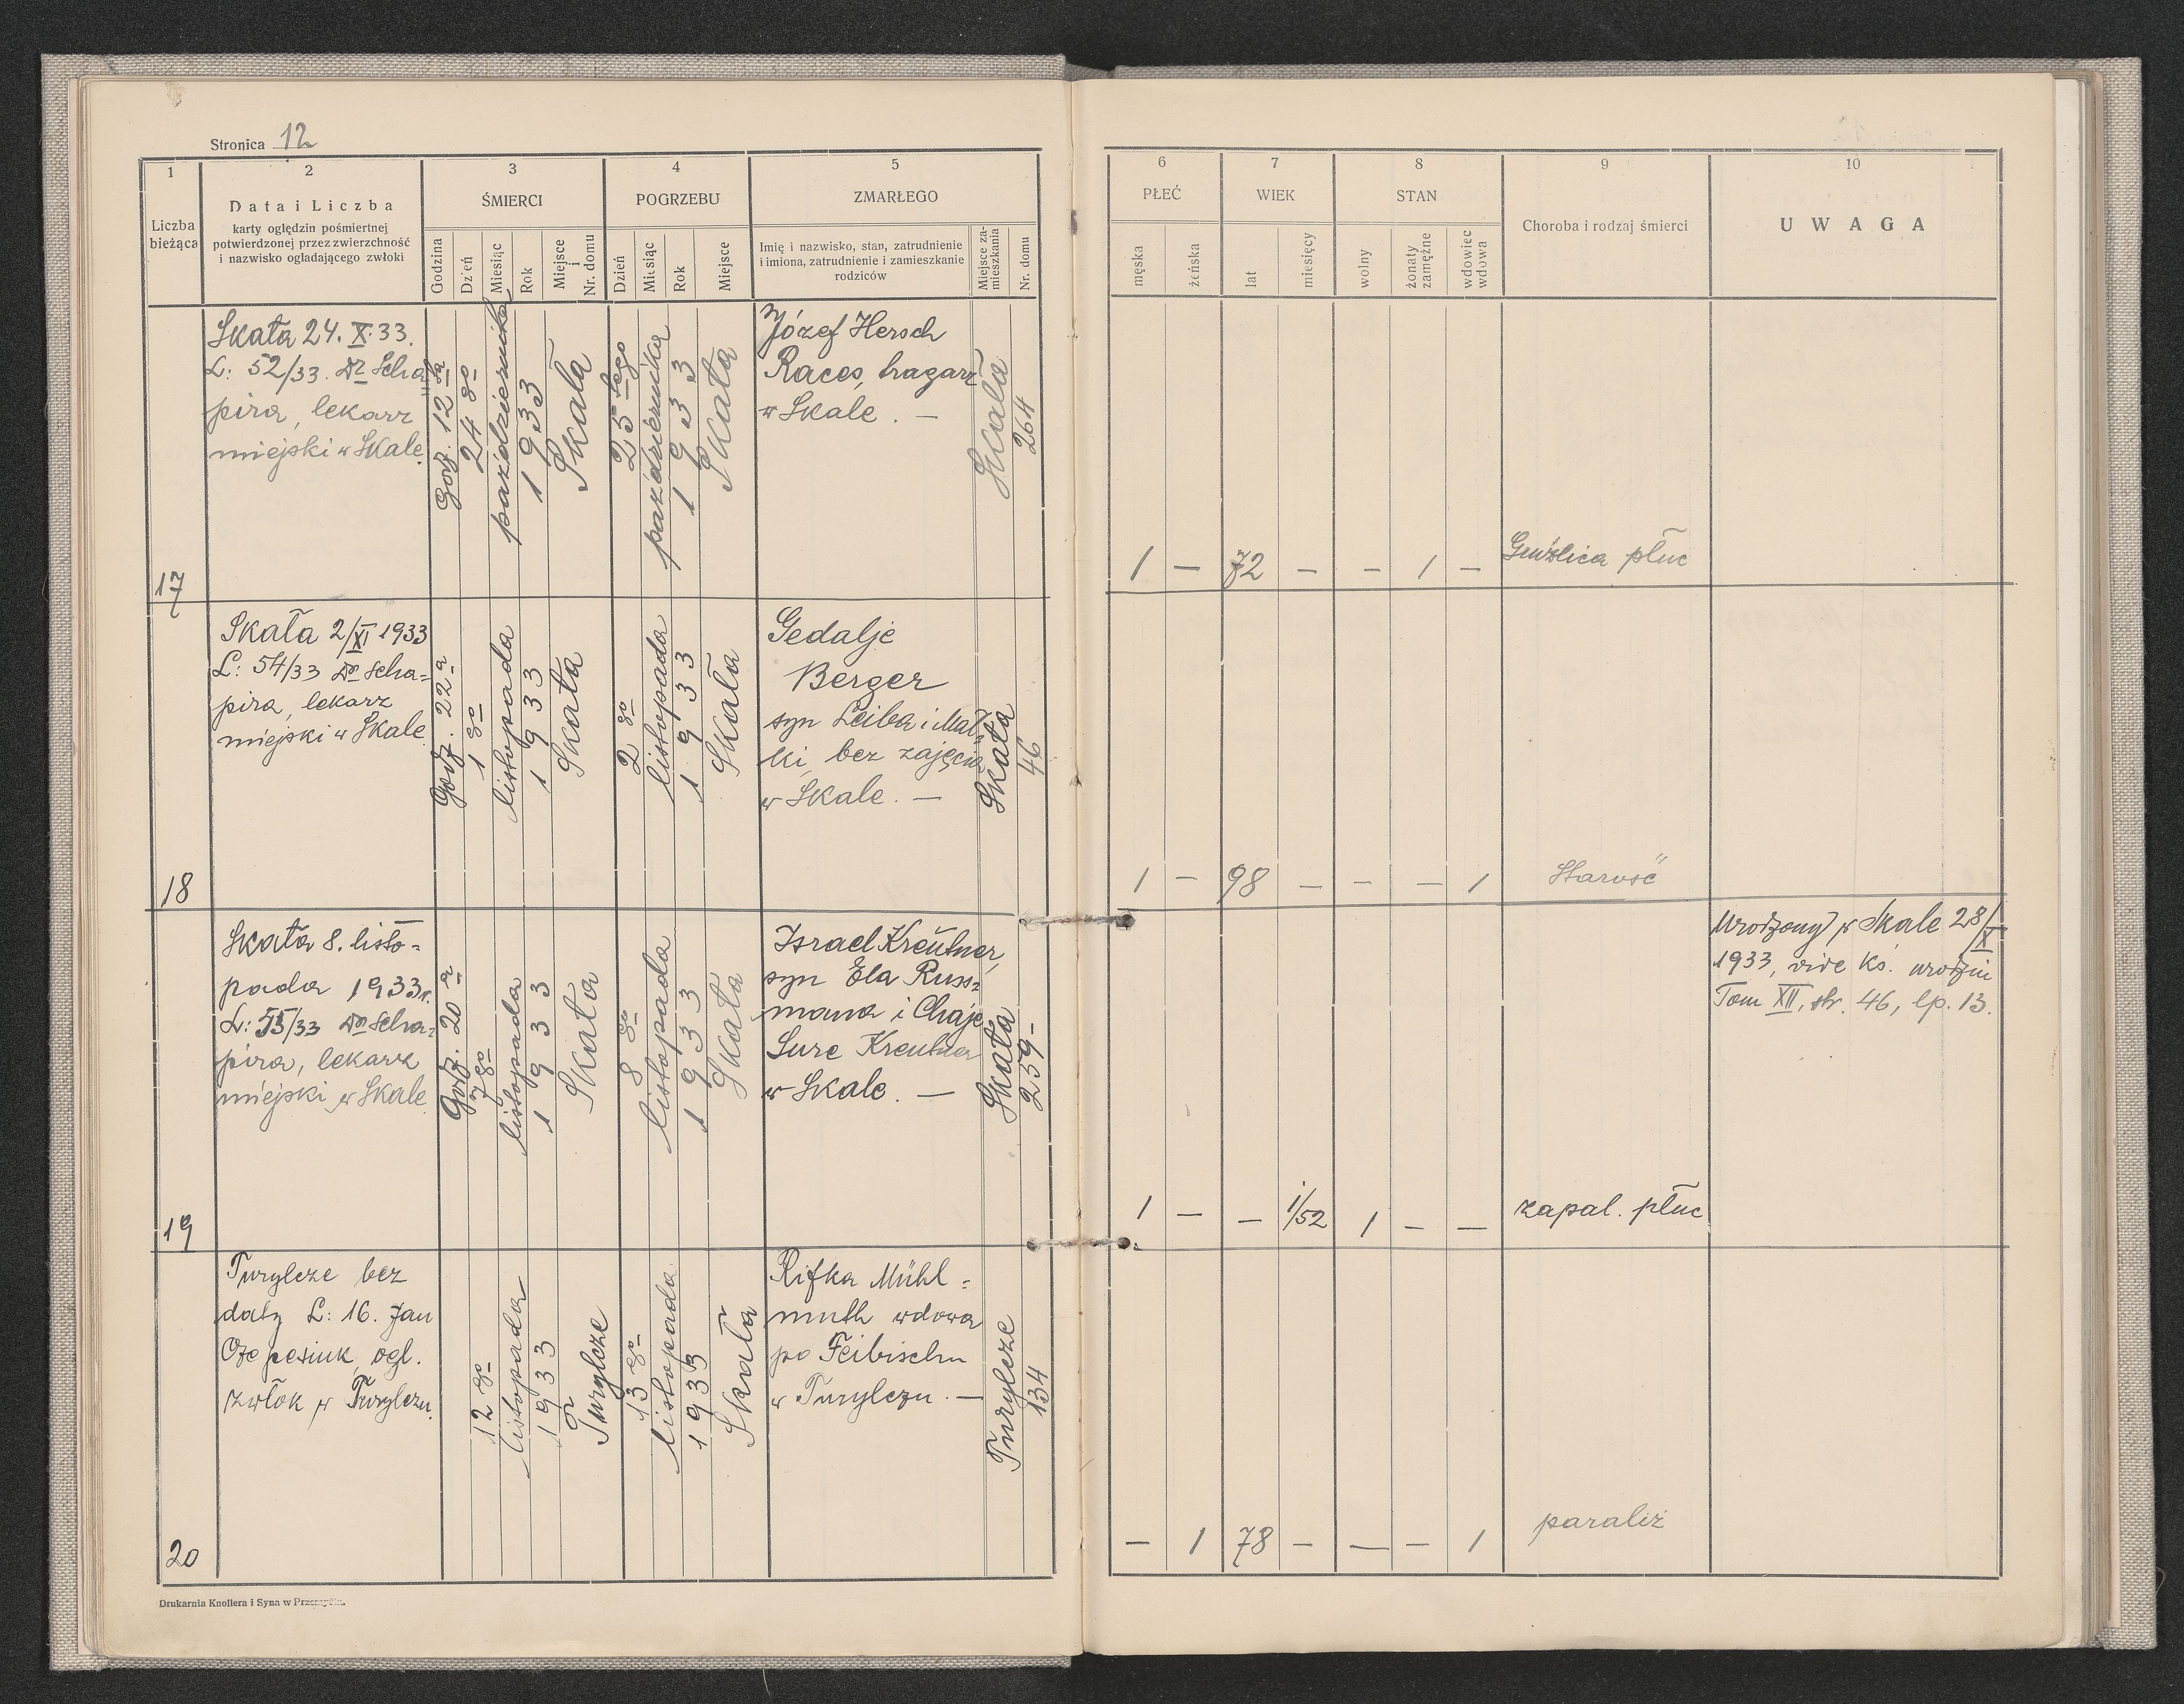 Stronica 12
1
2
3
4
5
6
7
8
9
10
Liczba
bieżąca
Data i Liczba
karty oględzin pośmiertnej
potwierdzonej przez zwierzchność
i nazwisko ogladającego zwłoki
ŚMIERCI
Godzina
Dz'eń
Miesiąc
Rok
Miejsce
i
Nr. domu
POGRZEBU
Dzień
Miesiąc
Rok
Miejsce
ZMARŁEGO
Imię i nazwisko, stan, zatrudnienie
i imiona, zatrudnienie i zamieszkanie
rodziców
Miejsce za-
mieszkania
Nr. domu
PŁEĆ
męska
żeńska
WIEK
lat
miesięcy
STAN
wolny
żonaty
zamężne
wdowiec
wdowa
Choroba i rodzaj śmierci
UWAGA
17
Skała 24. X. 33.
L: 52/33. Dr Scha=
pira, lekarz
miejski w Skale.
Godz. 12 ta
24 go
października
1933
Skała
25 tego
października
1933
Skała
Józef Hersch
Races, tragarz
w Skale. —
Skała
264
1 — 72 — — 1 —
Gruźlica płuc
18
Skała 2/XI 1933
L: 54/33 Dr Scha=
pira, lekarz
miejski w Skale
Godz. 22 a
1 go
listopada
1933
Skała
2 go
listopada
1933
Skała
Gedalje
Berger
syn Leiba i Mal=
ki, bez zajęcia
w Skale. —
Skała
46
1 — 98 — — — 1
Starość
19
Skała 8. listo=
pada 1933r.
L: 55/33 Dr Scha=
pira, lekarz
miejski w Skale
Godz. 20 a
7 go
listopada
1933
Skała
8 go
listopada
1933
Skała
Israel Kreutner,
syn Ela Russ=
mana i Chaje
Sure Kreutner
w Skale. —
Skała
259-
1 — — 1/52 1 — —
zapal. płuc
Urodzony w Skale 28/X
1933, vide ks. urodzin
Tom XII, str. 46, lp. 13.
20
Turylcze bez
daty L: 16. Jan
ogl.
zwłok w Turylczu.
12 go
listopada
1933
Turylcze
13 go
listopada
1933
Skała
Rifka Mühl=
muth wdowa
po Feibischu
w Turylczu. —
Turylcze
134
— 1 78 — — — 1
paraliż
Drukarnia Knollera i Syna w Przemyślu.